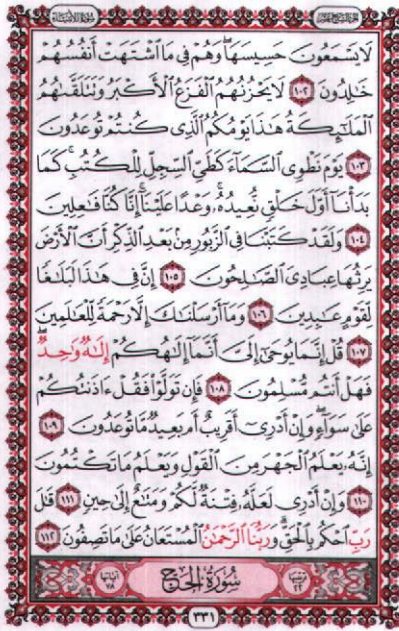 سورة الأنبياء
لَا يَسْمَعُونَ حَسِيسَهَا وَهُمْ فِي مَا ٱشْتَهَتْ أَنفُسُهُمْ
خَٰلِدُونَ ١٠٢ لَا يَحْزُنُهُمُ ٱلْفَزَعُ ٱلْأَكْبَرُ وَتَتَلَقَّىٰهُمُ
ٱلْمَلَٰٓئِكَةُ هَٰذَا يَوْمُكُمُ ٱلَّذِي كُنتُمْ تُوعَدُونَ
١٠٣ يَوْمَ نَطْوِي ٱلسَّمَآءَ كَطَيِّ ٱلسِّجِلِّ لِلْكُتُبِ كَمَا
بَدَأْنَآ أَوَّلَ خَلْقٍ نُّعِيدُهُۥ وَعْدًا عَلَيْنَآ إِنَّا كُنَّا فَٰعِلِينَ
١٠٤ وَلَقَدْ كَتَبْنَا فِي ٱلزَّبُورِ مِنۢ بَعْدِ ٱلذِّكْرِ أَنَّ ٱلْأَرْضَ
يَرِثُهَا عِبَادِيَ ٱلصَّٰلِحُونَ ١٠٥ إِنَّ فِي هَٰذَا لَبَلَٰغًا
لِّقَوْمٍ عَٰبِدِينَ ١٠٦ وَمَآ أَرْسَلْنَٰكَ إِلَّا رَحْمَةً لِّلْعَٰلَمِينَ
١٠٧ قُلْ إِنَّمَا يُوحَىٰٓ إِلَيَّ أَنَّمَآ إِلَٰهُكُمْ إِلَٰهٌ وَٰحِدٌ
فَهَلْ أَنتُم مُّسْلِمُونَ ١٠٨ فَإِن تَوَلَّوْا۟ فَقُلْ ءَاذَنتُكُمْ
عَلَىٰ سَوَآءٍ وَإِنْ أَدْرِيٓ أَقَرِيبٌ أَم بَعِيدٌ مَّا تُوعَدُونَ ١٠٩
إِنَّهُۥ يَعْلَمُ ٱلْجَهْرَ مِنَ ٱلْقَوْلِ وَيَعْلَمُ مَا تَكْتُمُونَ
١١٠ وَإِنْ أَدْرِي لَعَلَّهُۥ فِتْنَةٌ لَّكُمْ وَمَتَٰعٌ إِلَىٰ حِينٍ ١١١ قَٰلَ
رَبِّ ٱحْكُم بِٱلْحَقِّ وَرَبُّنَا ٱلرَّحْمَٰنُ ٱلْمُسْتَعَانُ عَلَىٰ مَا تَصِفُونَ ١١٢
ترتيبها ٢٢ سُورَةُ الحَجّ آياتها ٧٨
٣٣١